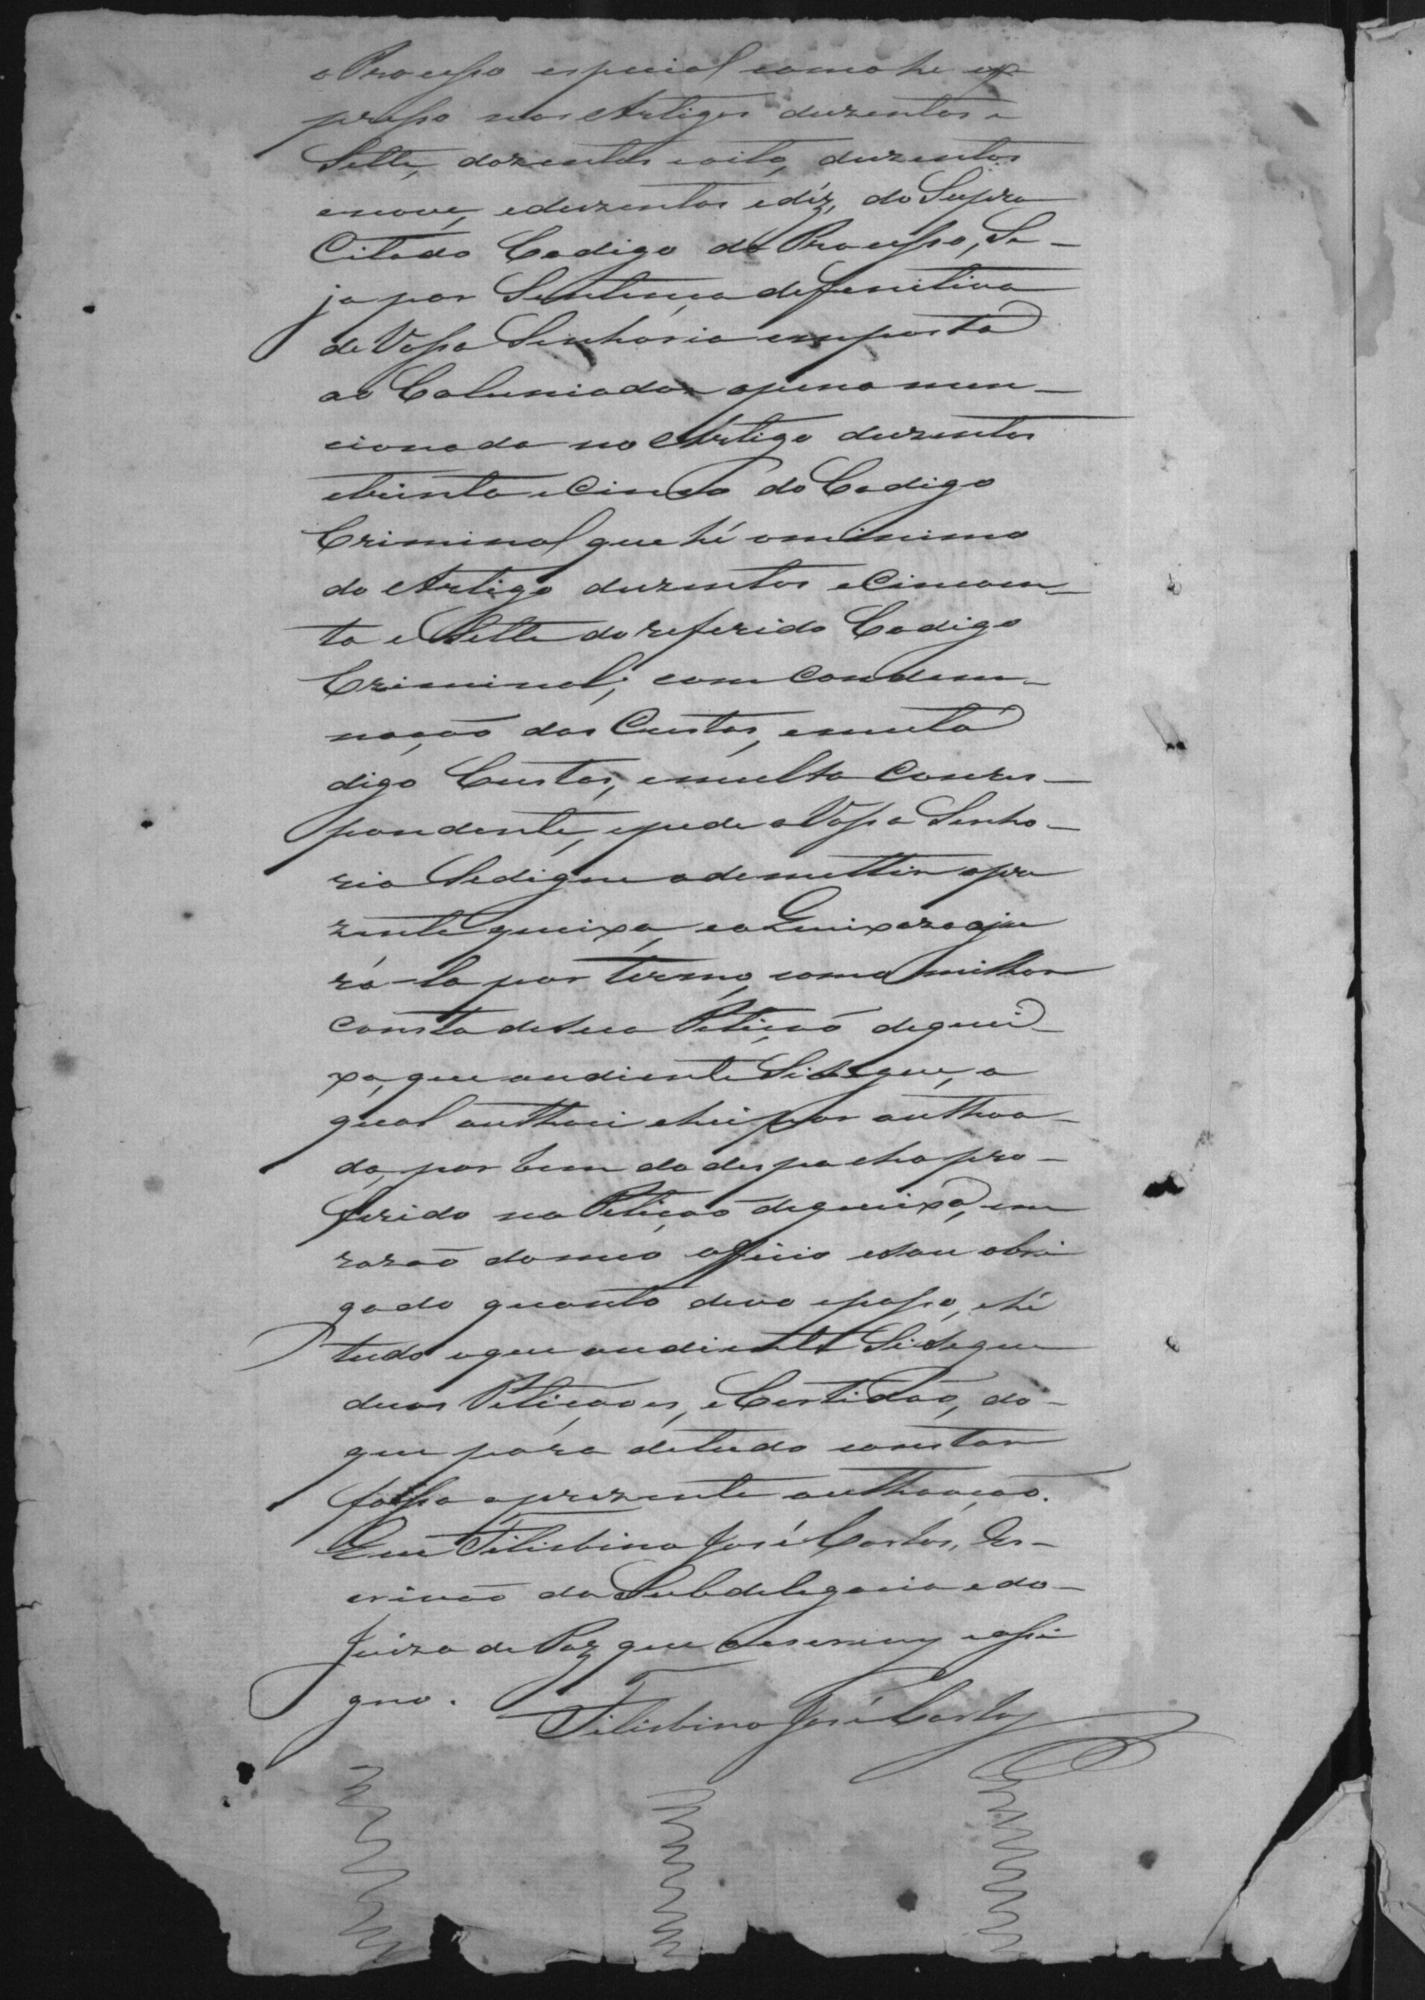 o Processo especial como he ex
presso nos Artigos duzentos e
Sette, dozentos e oito, duzentos
e nove, e duzentos e déz, do Supra
Citado Codigo do Processo, Se-
ja por Sentença defenitiva
de Vossa Senhoria emposta
ao Caluniador a pena men-
cionada no Artigo duzentos
e trinta e Cinco do Codigo
Criminal que hé o minimo
do Artigo duzentos e Cincoen-
ta e Sette do referido Codigo
Criminal; com Condem-
nação das Custas, e multa
digo Custas, e multa Corres-
pondente, e pede a Vossa Senho-
ria Se digne ademettir a pre
zente queixa, e o Queixozo a ju
rá-la por termo, como milhor
consta de Sua Petição de quei-
xa, que audiente Si Segue, a
qual authuei e hei por authoa-
da, por bem do despacho pro-
ferido na Petição de queixa, em
razão do meo officio estou obri
gado quanto devo e posso, e hé
tudo o que audiente Si Segue
duas Petiçoes, e Certidão, do-
que para de tudo constar
fasso a prezente authoação.
Eu Filisbino José Castos, Es-
crivão da Subdelegacia e do-
Juizo de Paz que o escrevy e assi
gno.
Filisbino José Castos